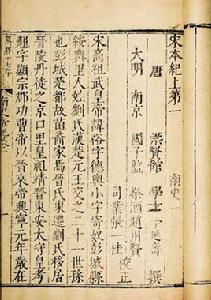 宋本紀上第一
南史一
唐 崇賢館 學士 李延壽 撰
大明 南京 國子監
司業張
校正
宋高祖武皇帝諱裕字德輿小字寄奴彭城縣
綏輿里人姓劉氏漢楚元王交之二十一世孫
也彭城楚都故苗裔家焉晉氏東遷劉氏移居
晉陵丹徒之京口里皇祖靖晉東安太守皇考
翹字顯宗郡功曹帝以晉哀帝興寧元年歲在